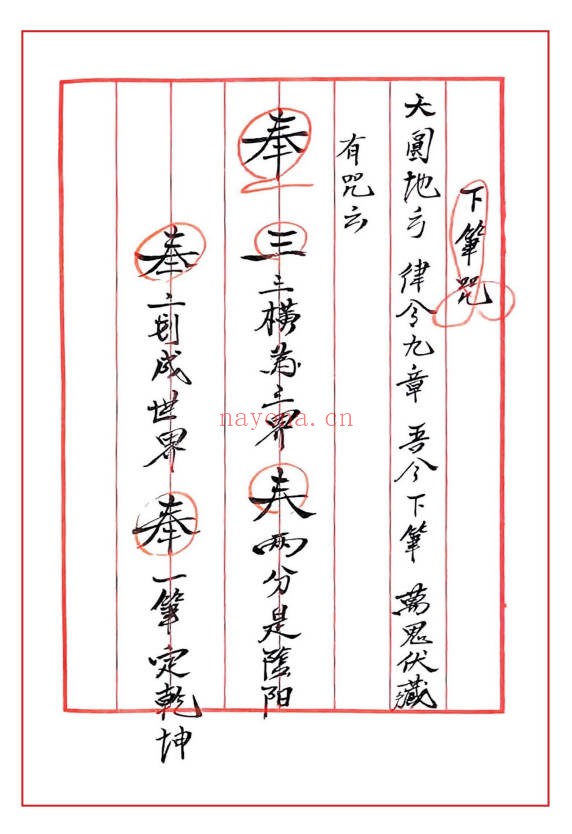 下筆咒
天圓地方 律令九章 吾今下筆 萬鬼伏藏
有咒云
奉 三 三横為三界 𡗗 两分是陰阳
奉 二划成世界 奉 一筆定乾坤
nayona.cn